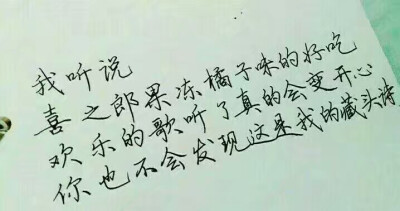 我听说
喜之郎果冻橘子味的好吃
欢乐的歌听了真的会变开心
你也不会发现这是我的藏头诗